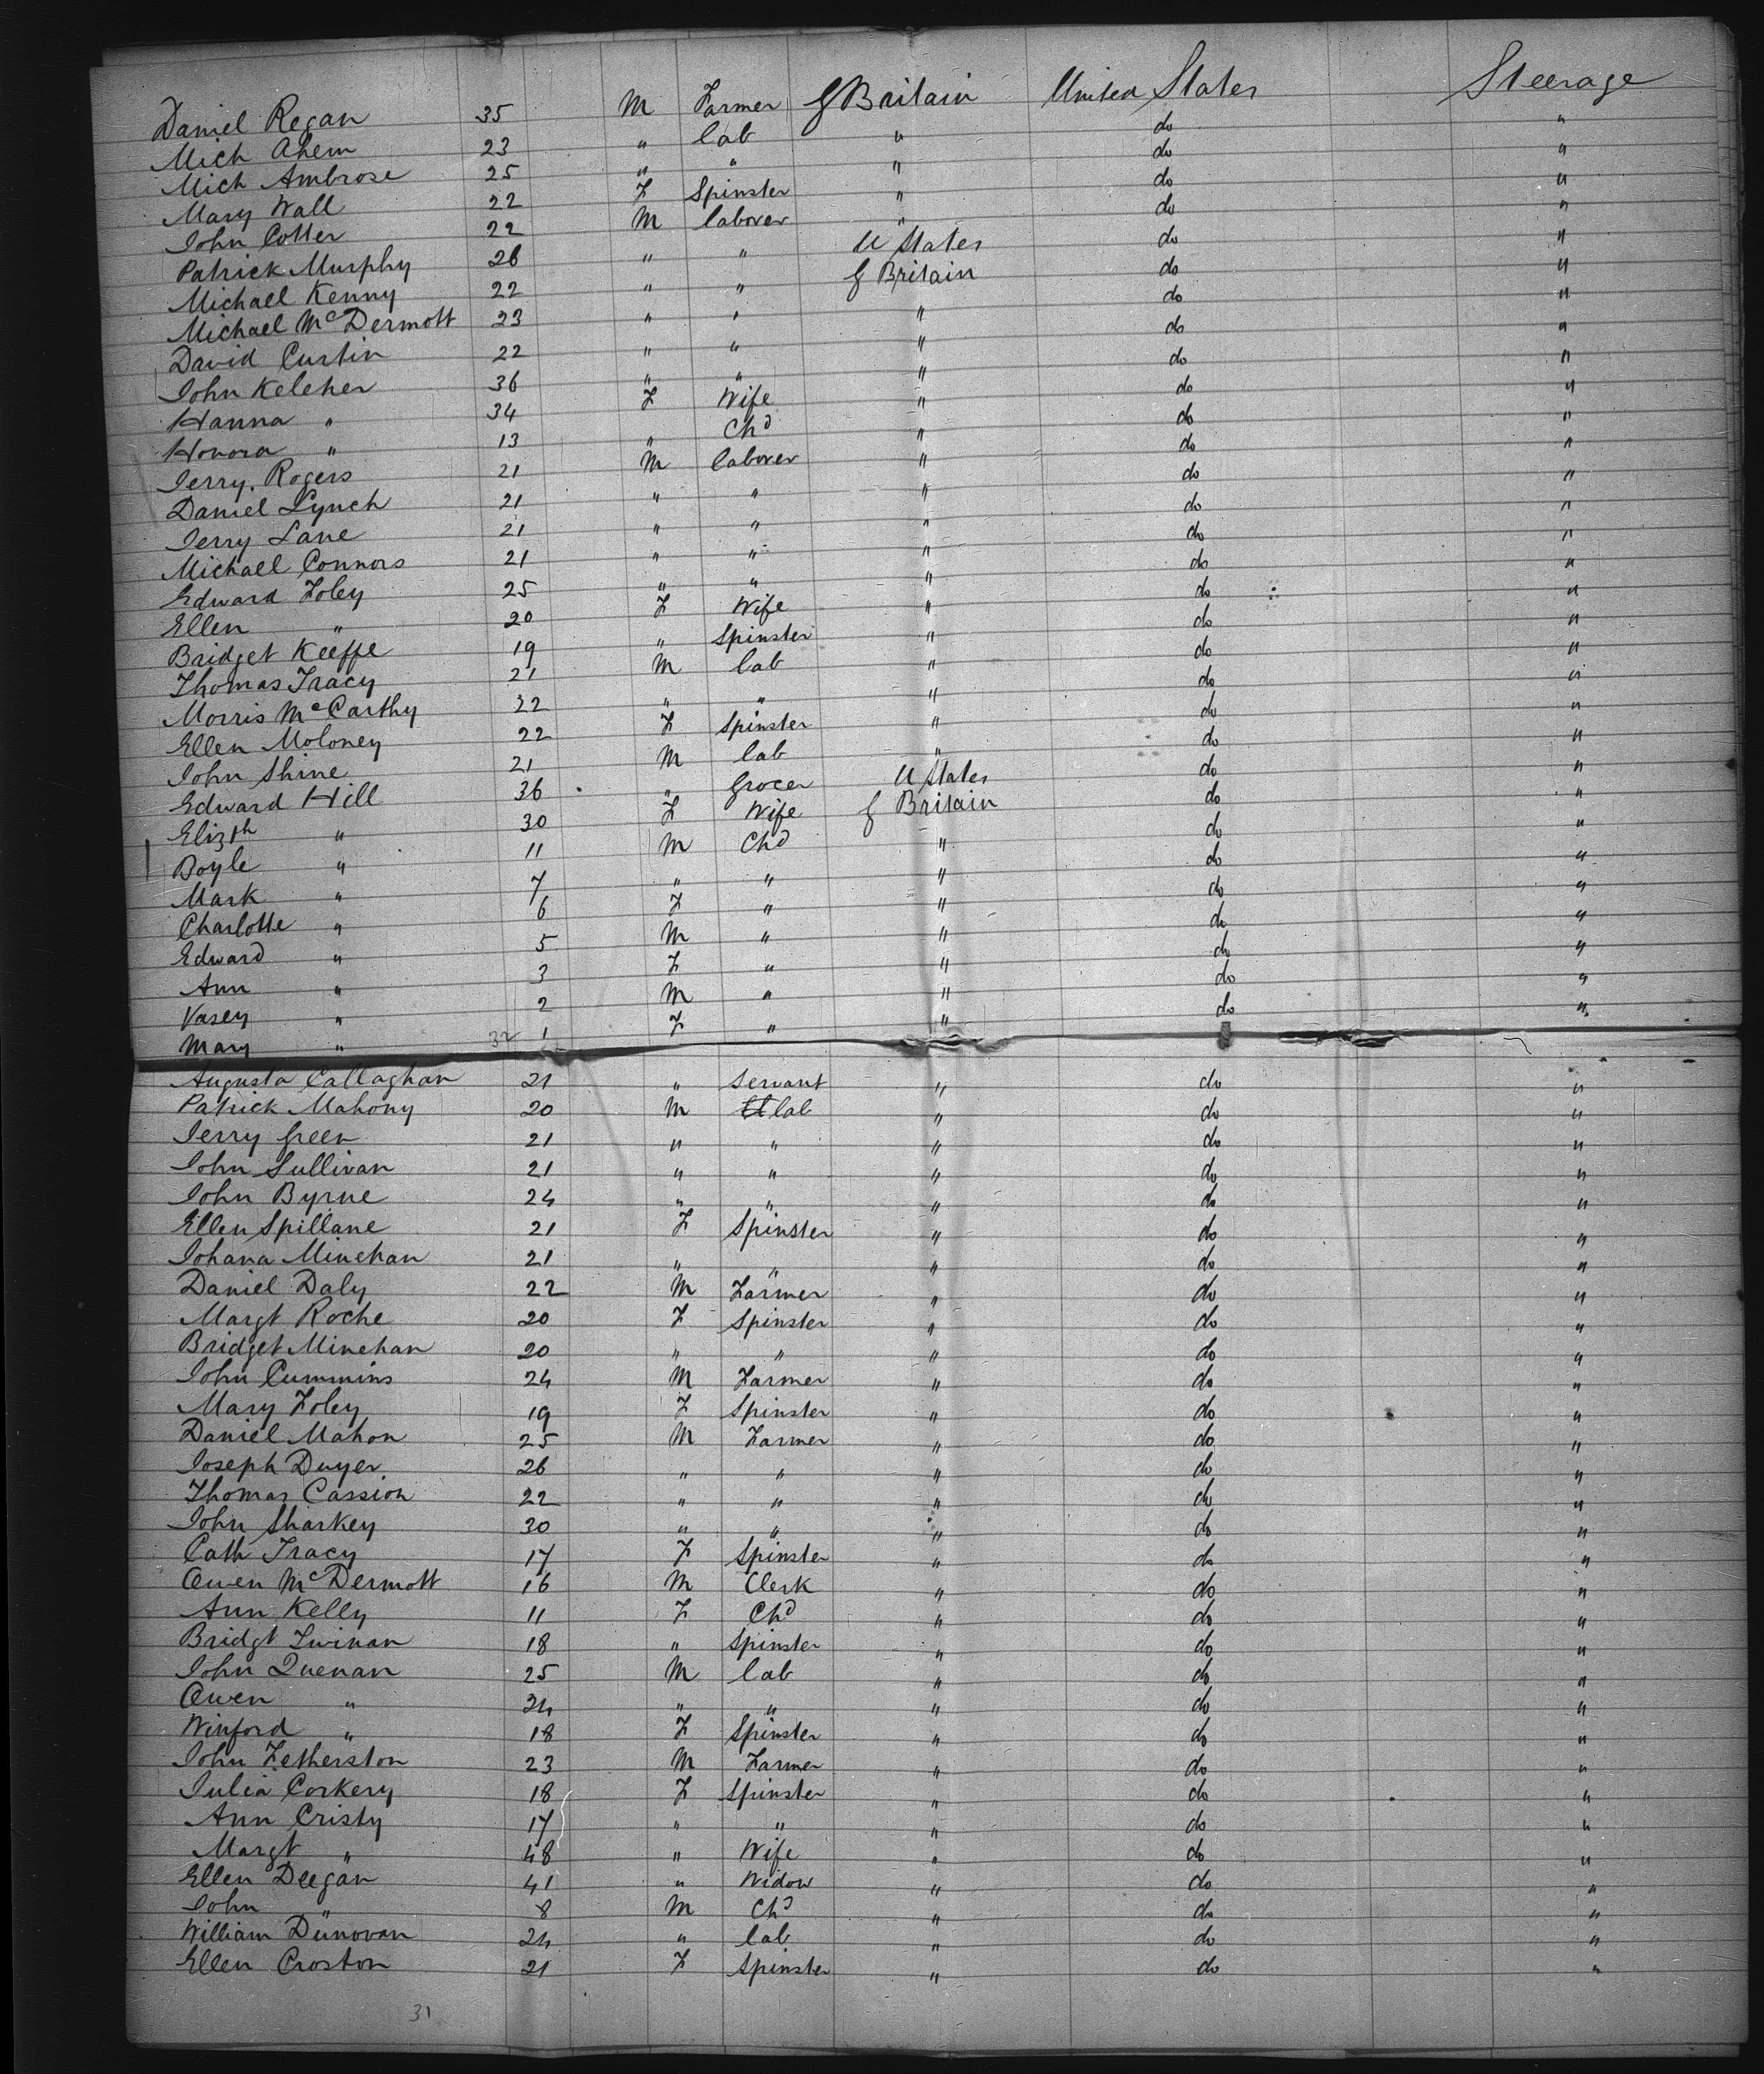 Daniel Regan 35 M Farmer G Britain United States Steerage
Mich Ahern 23 " lab " do "
Mich Ambrose 25 " " " do "
Mary Wall 22 F Spinster " do "
John Cotter 22 M laborer " do "
Patrick Murphy 26 " " U States do "
Michael Kenny 22 " " G Britain do "
Michael McDermott 23 " " " do "
David Curtin 22 " " " do "
John Keleher 36 " " " do "
Hanna " 34 F Wife " do "
Honora " 13 " Chd " do "
Jerry Rogers 21 M laborer " do "
Daniel Lynch 21 " " " do "
Jerry Lane 21 " " " do "
Michael Connors 21 " " " do "
Edward Foley 25 " " " do "
Ellen " 20 F Wife " do "
Bridget Keeffe 19 " Spinster " do "
Thomas Tracy 21 M lab " do "
Morris McCarthy 22 " " " do "
Ellen Moloney 22 F Spinster " do "
John Shine 21 M lab " do "
Edward Hill 36 " Grocer U States do "
Elizth " 30 F Wife G Britain do "
Doyle " 11 M Chd " do "
Mark " 7 " " " do "
Charlotte " 6 F " " do "
Edward " 5 M " " do "
Ann " 3 F " " do "
Vasey " 2 M " " do "
Mary " 32 1 F " "
Augusta Callaghan 21 " Servant " do "
Patrick Mahony 20 M lab " do "
Jerry Green 21 " " " do "
John Sullivan 21 " " " do "
John Byrne 24 " " " do "
Ellen Spillane 21 F Spinster " do "
Johana Minehan 21 " " " do "
Daniel Daly 22 M Farmer " do "
Margt Roche 20 F Spinster " do "
Bridget Minehan 20 " " " do "
John Cummins 24 M Farmer " do "
Mary Foley 19 F Spinster " do "
Daniel Mahon 25 M Farmer " do "
Joseph Dwyer 26 " " " do "
Thomas Cassion 22 " " " do "
John Sharkey 30 " " " do "
Cath Tracy 17 F Spinster " do "
Owen McDermott 16 M Clerk " do "
Ann Kelly 11 F Chd " do "
Bridgt Twinan 18 " Spinster " do "
John Quenan 25 M lab " do "
Owen " 24 " " " do "
Winford " 18 F Spinster " do "
John Fetherston 23 M Farmer " do "
Julia Corkery 18 F Spinster " do "
Ann Cristy 17 " " " do "
Margt " 48 " Wife " do "
Ellen Deegan 41 " Widow " do "
John " 8 M Chd " do "
William Dunovan 24 " lab " do "
Ellen Croston 21 F Spinster " do "
31